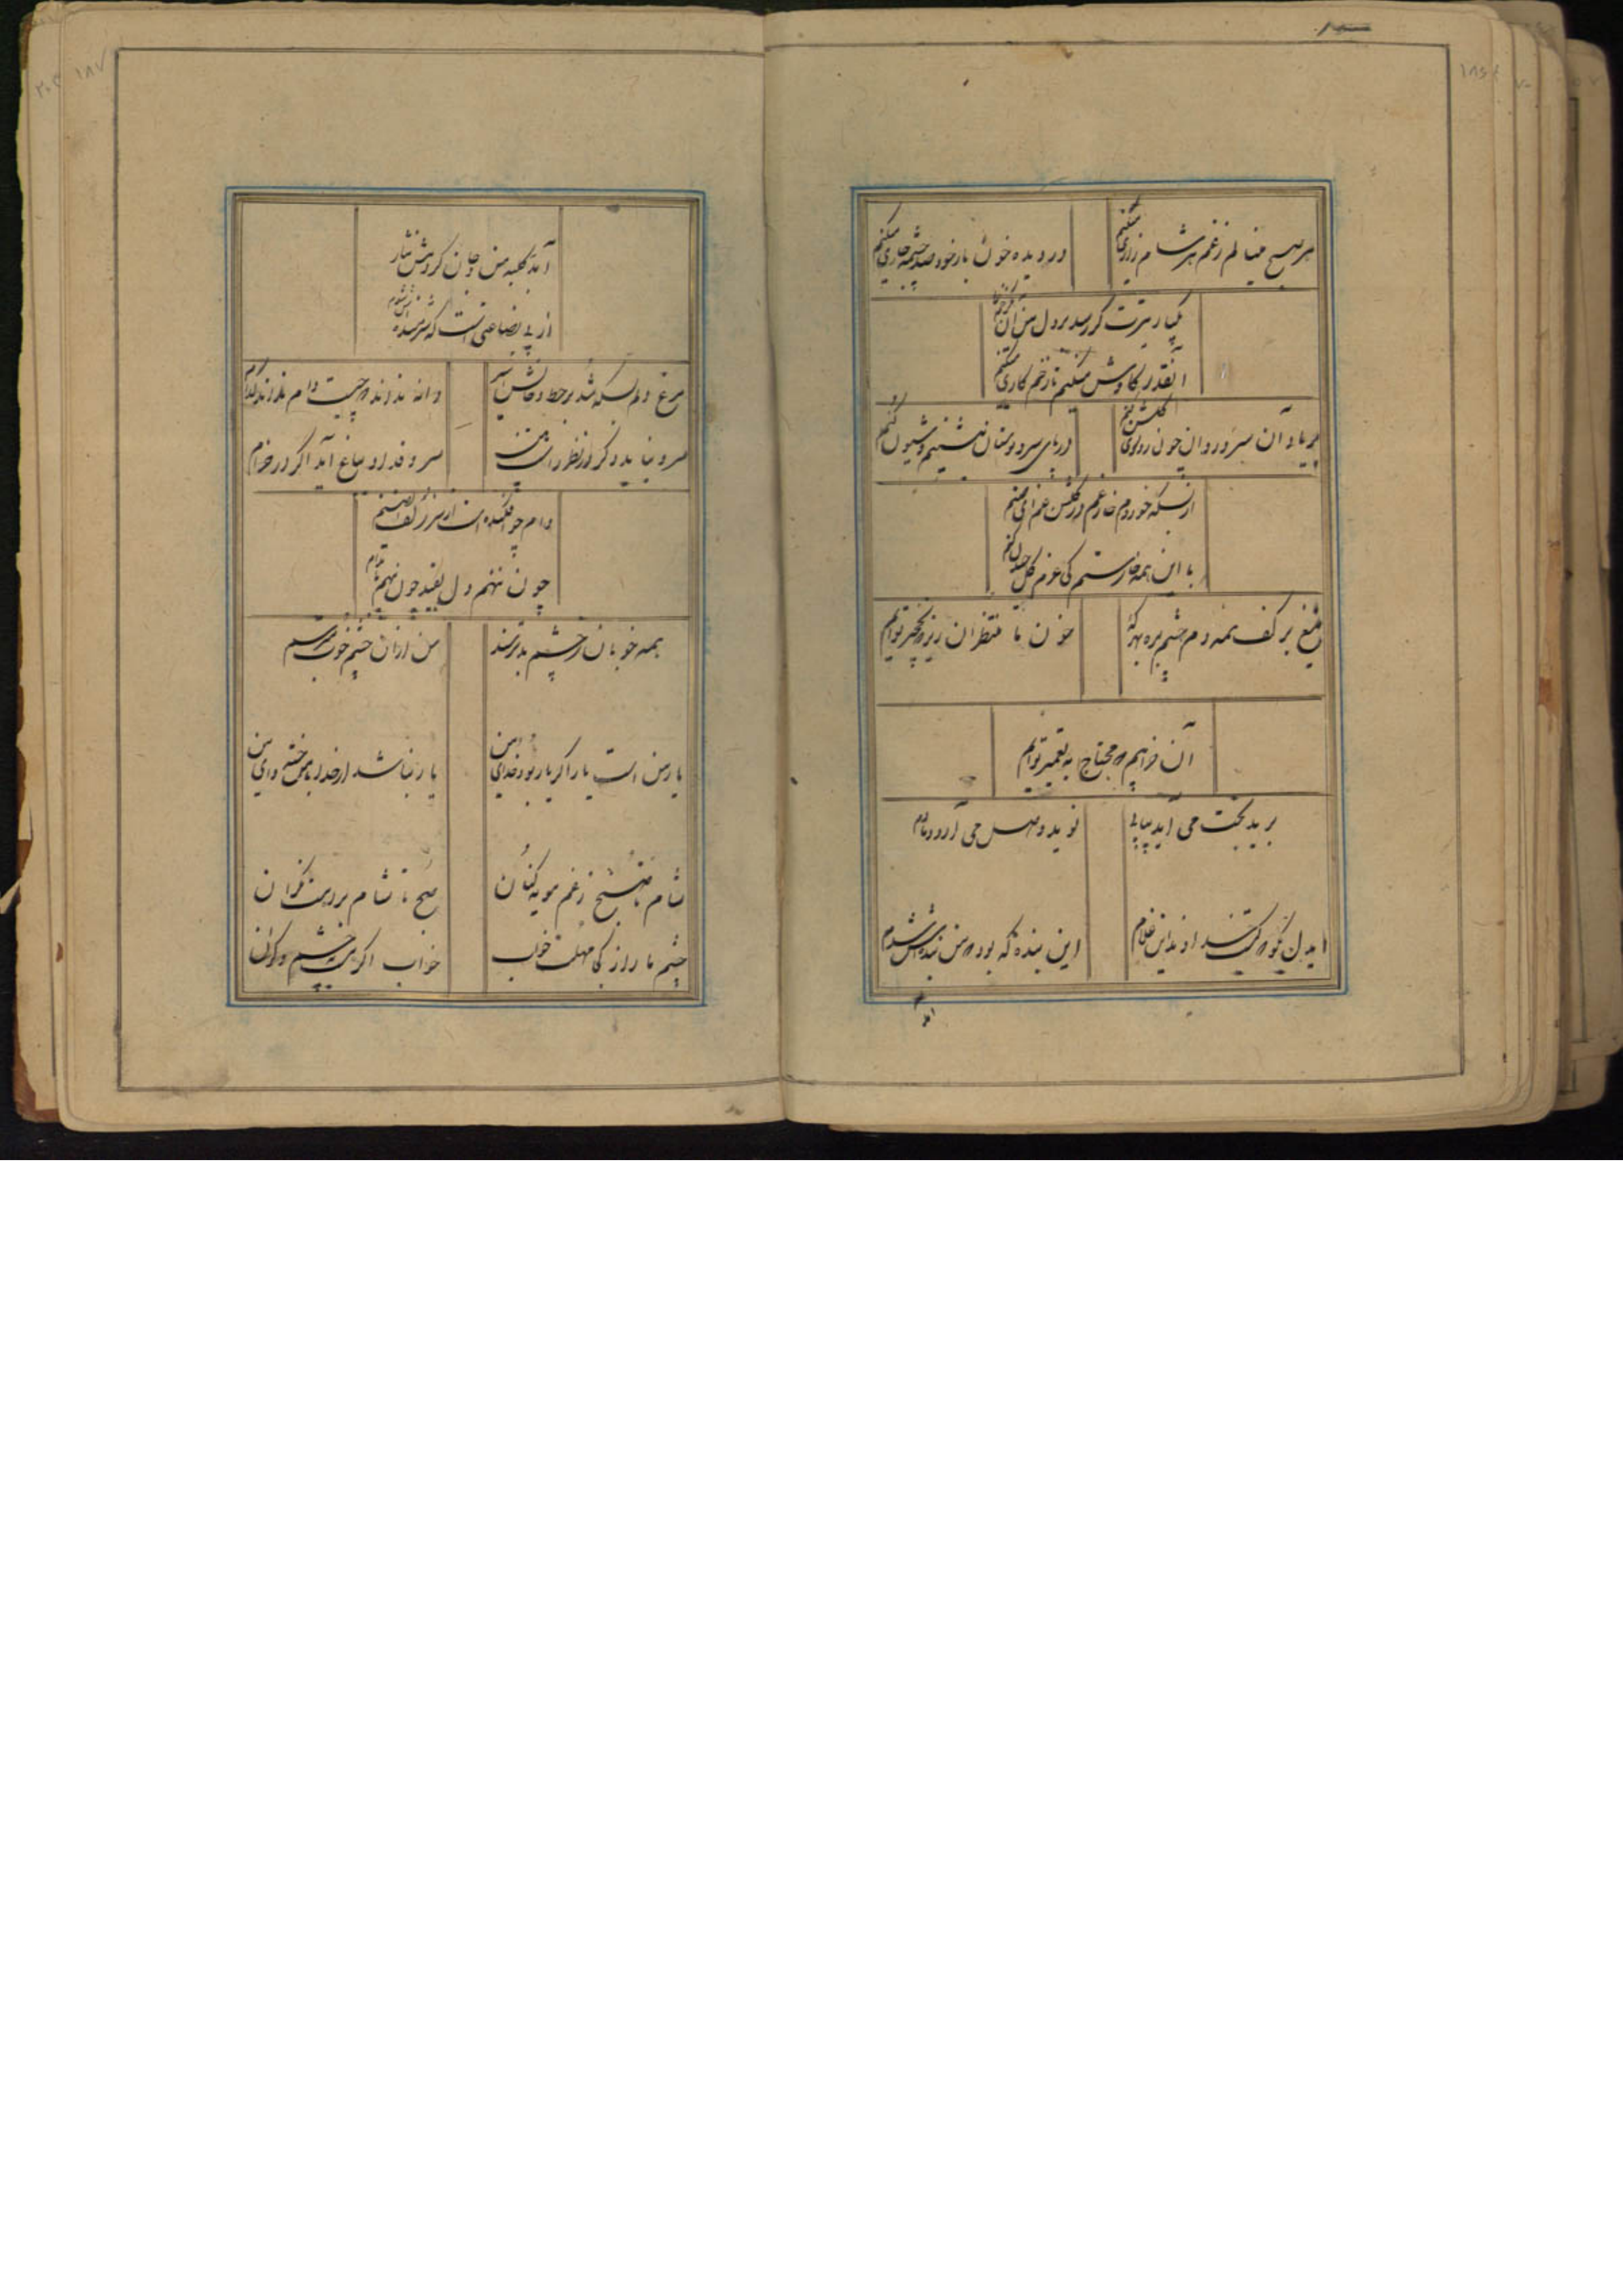 هر صبح مینالم ز غم هر شام زاری میکنم
در دیده خون بار خود صد چشمه جاری میکنم
یکبار تیرت گر رسد بر دل من آن
آنقدر کاوش میکنم تا زخم کاری میکنم
بر یاد آن سرو روان چون رو سوی گلشن کنم
در پای سرو بوستان بنشینم و شیون کنم
از بسکه خوردم خار غم در گلشن غم ای صنم
با این همه خار ستم کی عزم گل چیدن کنم
تیغ بر کف همه دم چشم بره بهر که
خون ما منتظران ریز که نخجیر توایم
آن خرابیم که محتاج به تعمیر توایم
برید بخت می آید پیاپی
نوید وصل می آرد دمادم
ایدل نگو که کشتند او ندا این غلام
این بنده که بود که من بنده اش شدم
آمد
آمد بکلبه من و جان کردمش نثار
از بی بضاعتی است که شرمنده اش شدم
مرغ دلم بسکه شد بر خط و خالش اسیر
دانه نداند که چیست دام نداند کدام
سرو نیاید دگر در نظر راستت
سرو قد او بباغ آید اگر در خرام
دام چو افکنده است از سر زلف آن صنم
چون ننهم دل بقید چون ننهم پا بدام
همه خوبان ز چشم بد ترسند
من از آن چشم خوب میترسم
یار من است یار اگر یار بود خدای من
یار نباشد ار خدا با من خسته وای من
شام تا صبح ز غم مویه کنان
صبح تا شام بر دست گران
چشم ما را ز کجا مهلت خواب
خواب اگر هست بچشم دگران